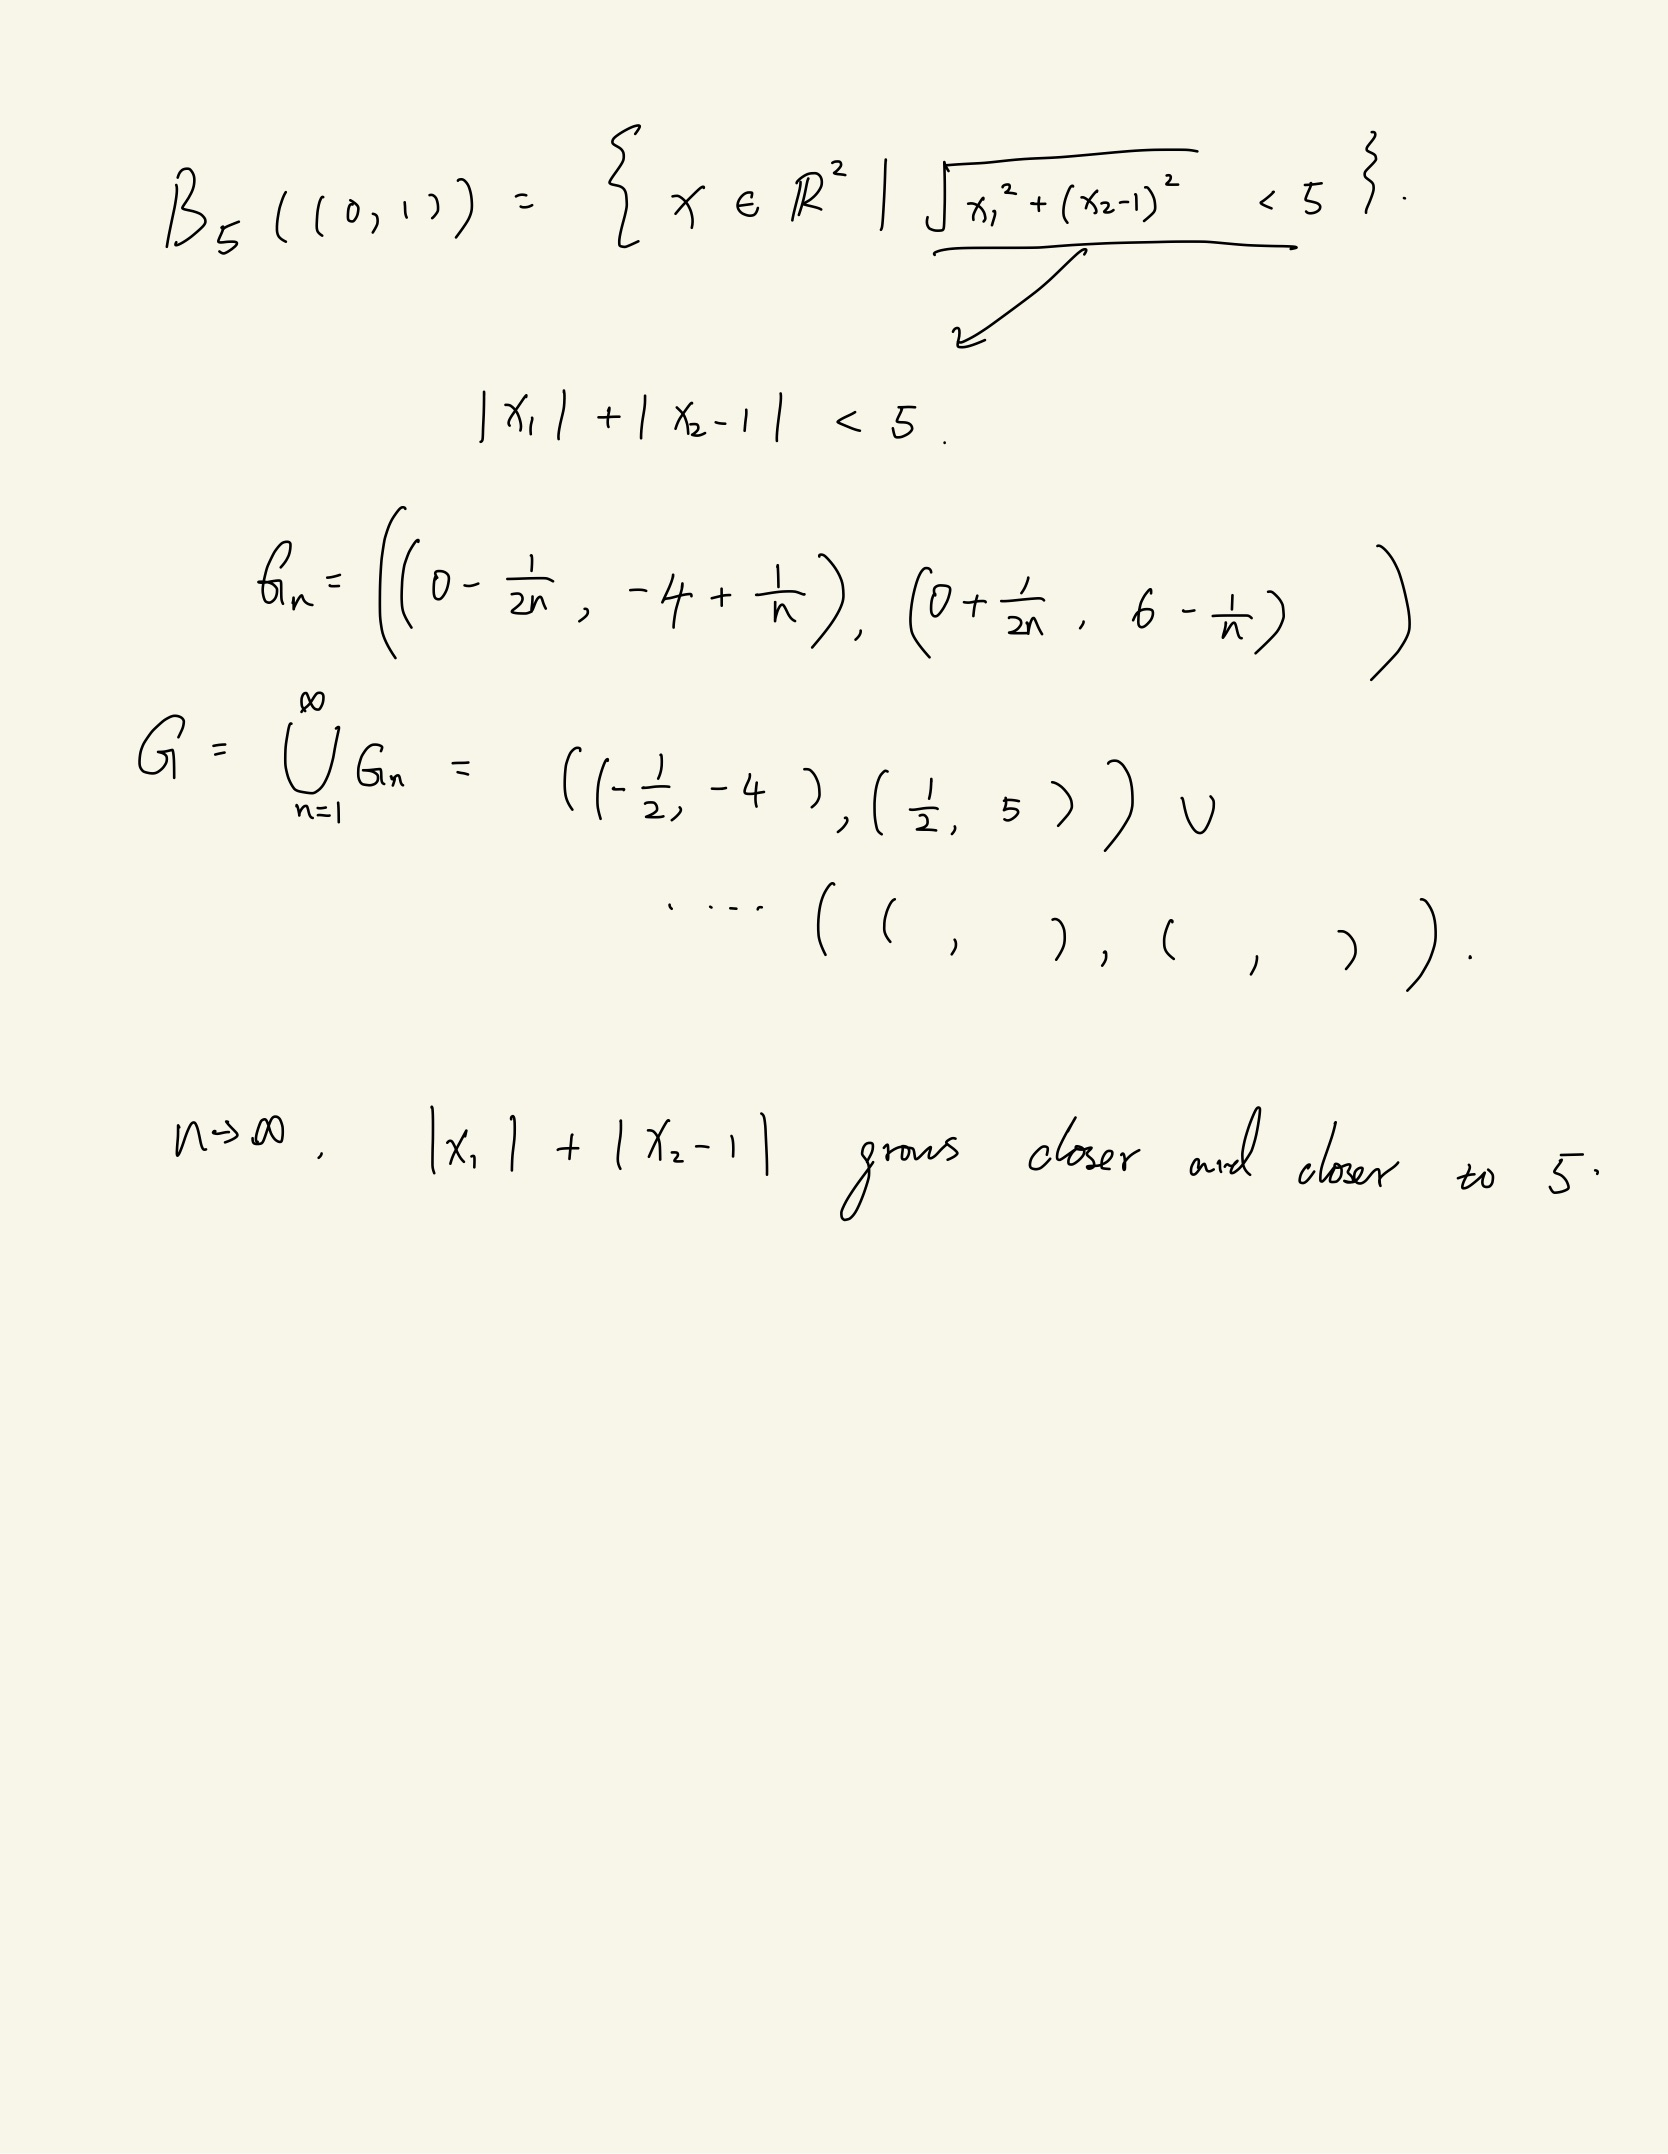 B₅((0,1)) = { x ∈ ℝ² | √(x₁² + (x₂-1)²) < 5 }.
|x₁| + |x₂-1| < 5.
Gₙ = ((0 - 1/2n, -4 + 1/n), (0 + 1/2n, 6 - 1/n))
G = ⋃ₙ₌₁^∞ Gₙ = ((-1/2, -4), (1/2, 5)) ∪
..... (( , ), ( , )).
n→∞, |x₁| + |x₂-1| grows closer and closer to 5.